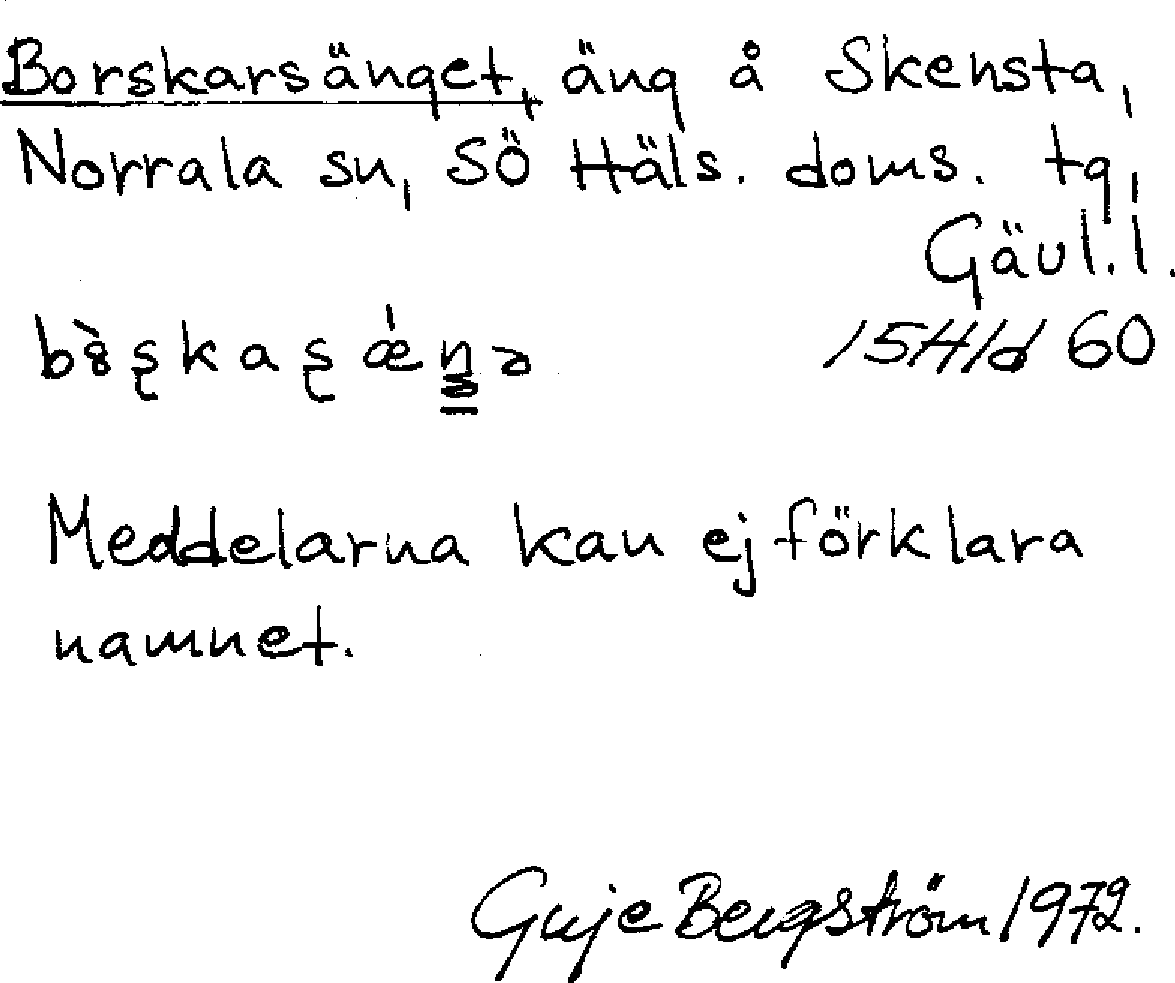 Borskarsänget, äng å Skensta,
Norrala sn, SÖ Häls. doms. tg,
Gävl.l.
15H1d 60
Meddelarna kan ej förklara
namnet.
Guje Bergström 1972.